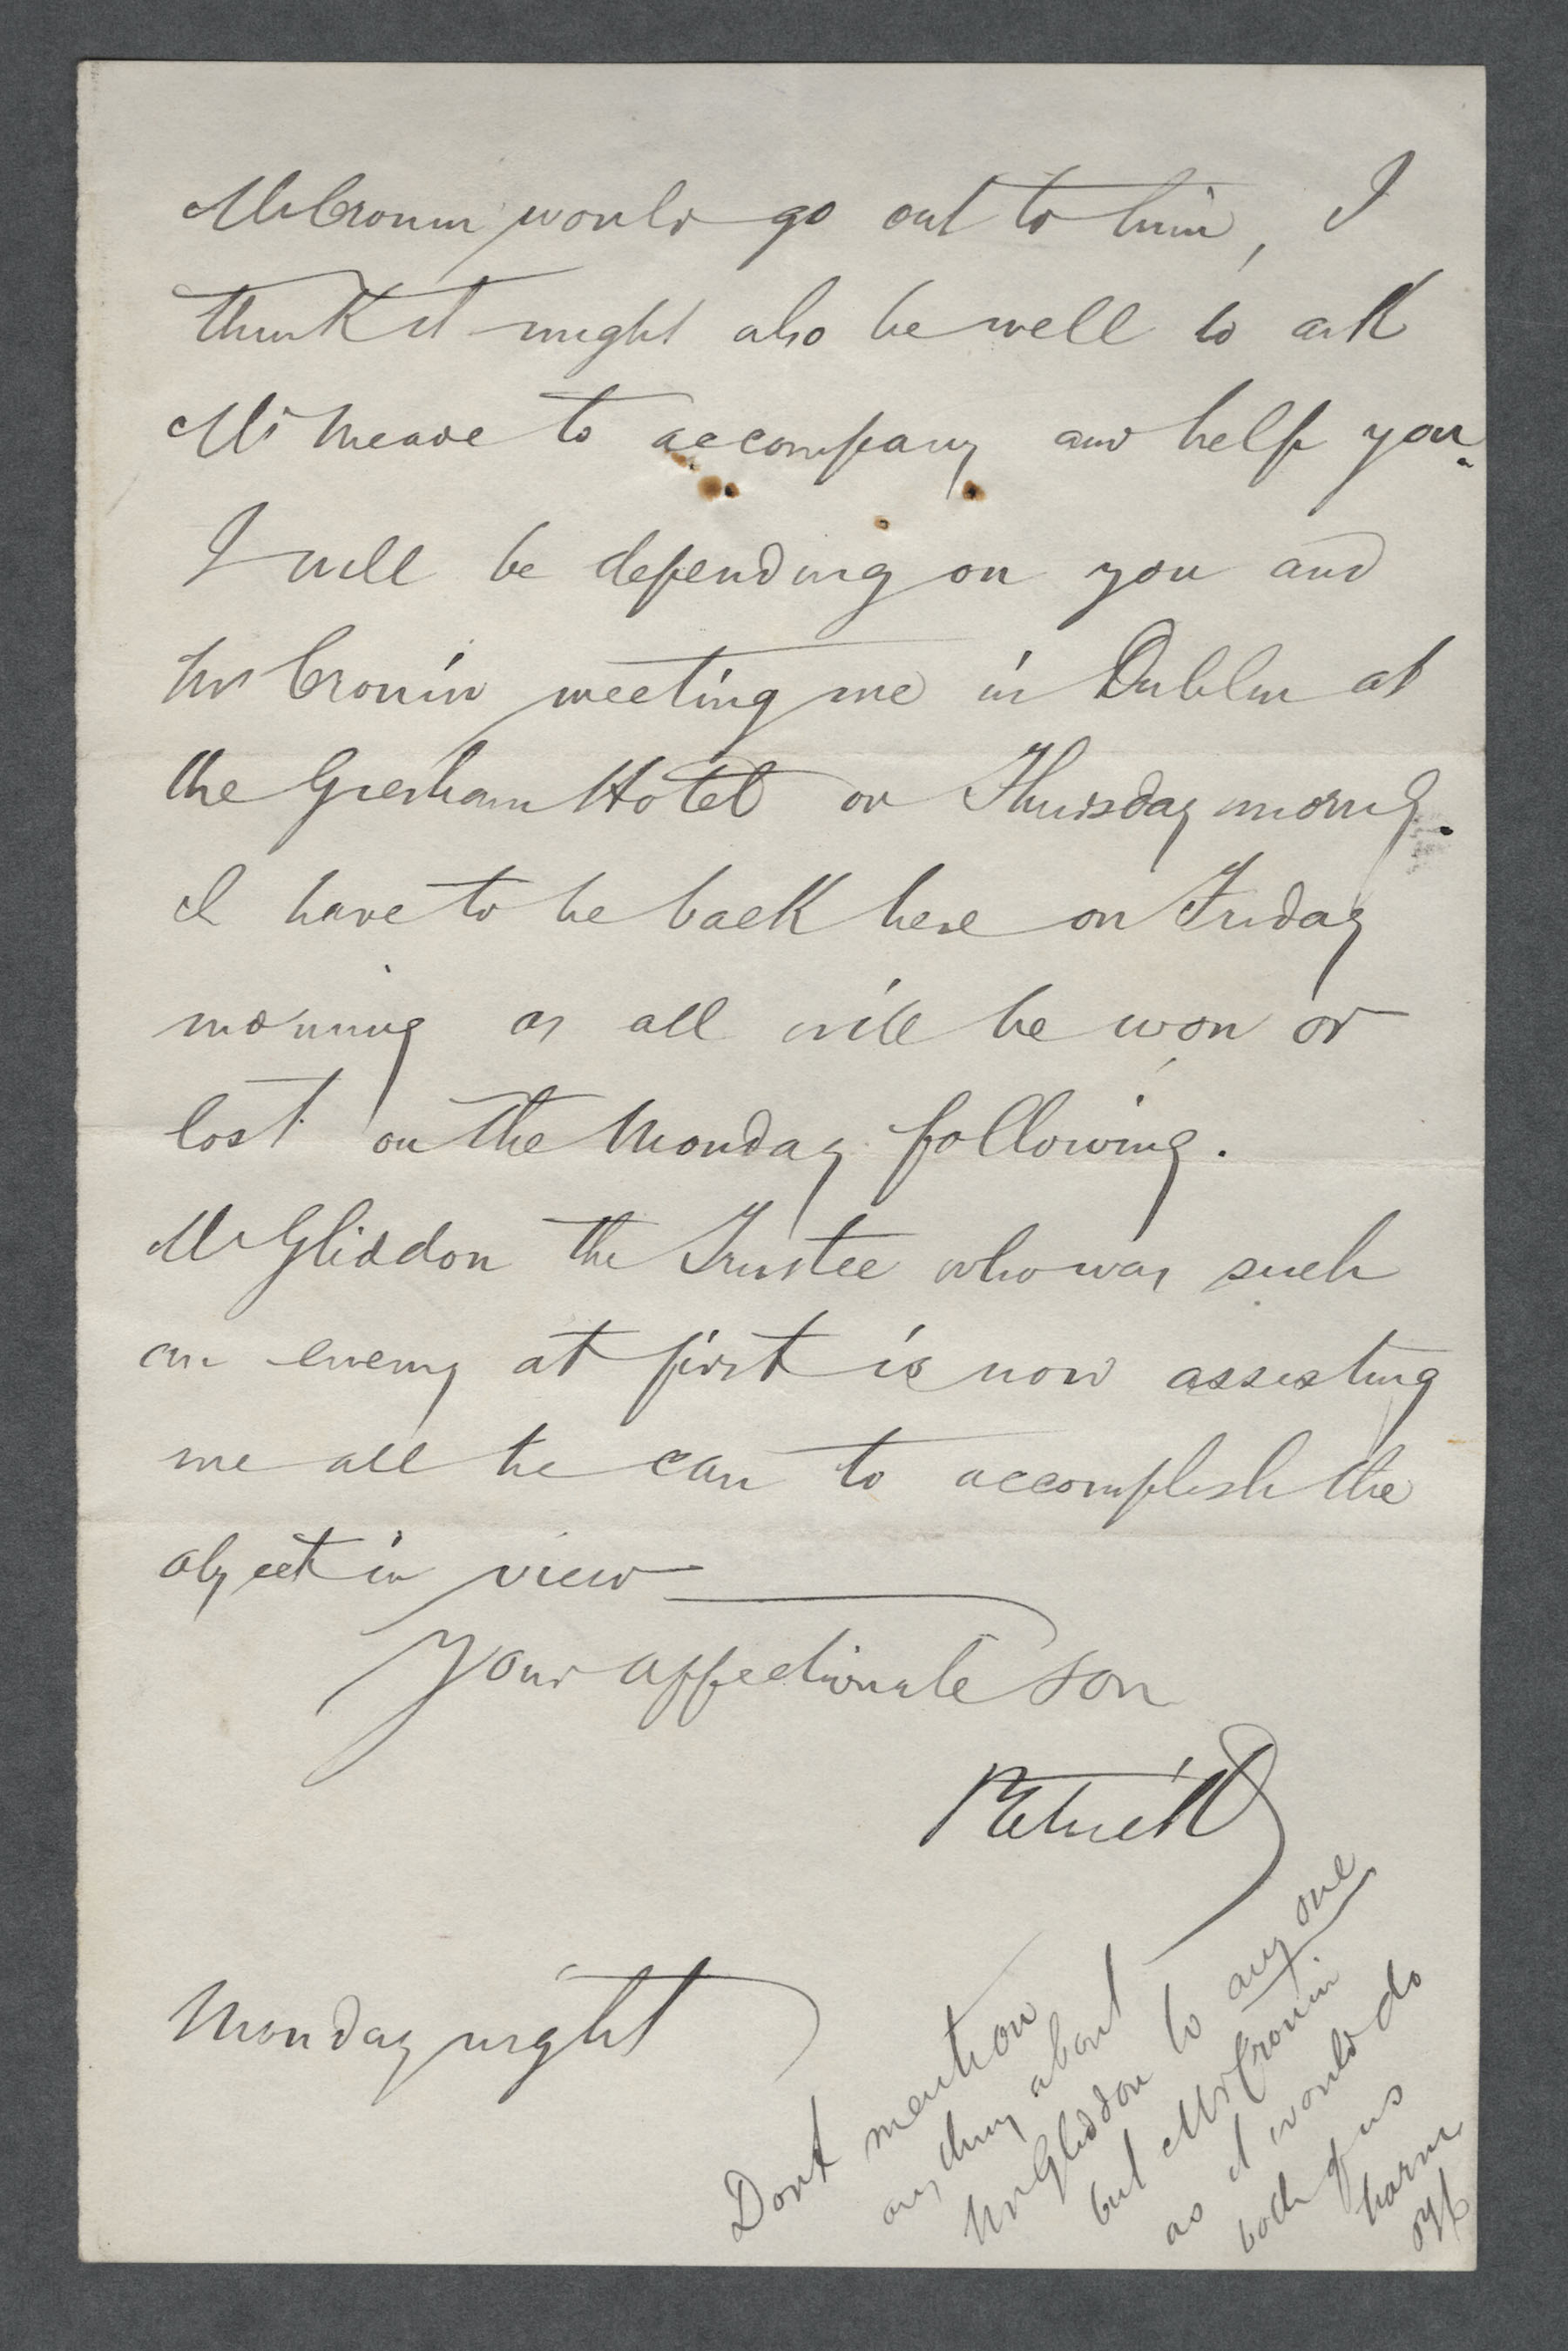 Mr Cronin would go out to him, I
think it might also be well to ask
Mr Meade to accompany and help you.
I will be depending on you and
Mr Cronin meeting me in Dublin at
the Gresham Hotel on Thursday morng.
I have to be back here on Friday
morning as all will be won or
lost on the Monday following.
Mr Gliddon the Trustee who was such
an enemy at first is now assisting
me all he can to accomplish the
object in view
Your affectionate son
Patrick
Monday night
Dont mention
anything about
Mr Gliddon to any one
but Mr Cronin
as it would do
both of us
harm